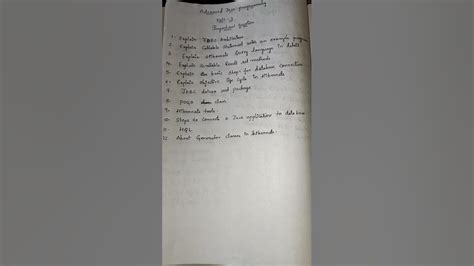 Advanced Java programming
Unit-2
Important question
1. Explain JDBC Architecture
2. Explain Callable Statement with an example program
3. Explain Hibernate Query Language in details
4. Explain Scrollable Result set methods
5. Explain the basic Steps for database connection
6. Explain Objective life Cycle in Hibernate
7. JDBC drivers and package
8. POJO class
9. Hibernate tools
10. Steps to connect a Java application to database
11. HQL
12. About Generator classes in Hibernate